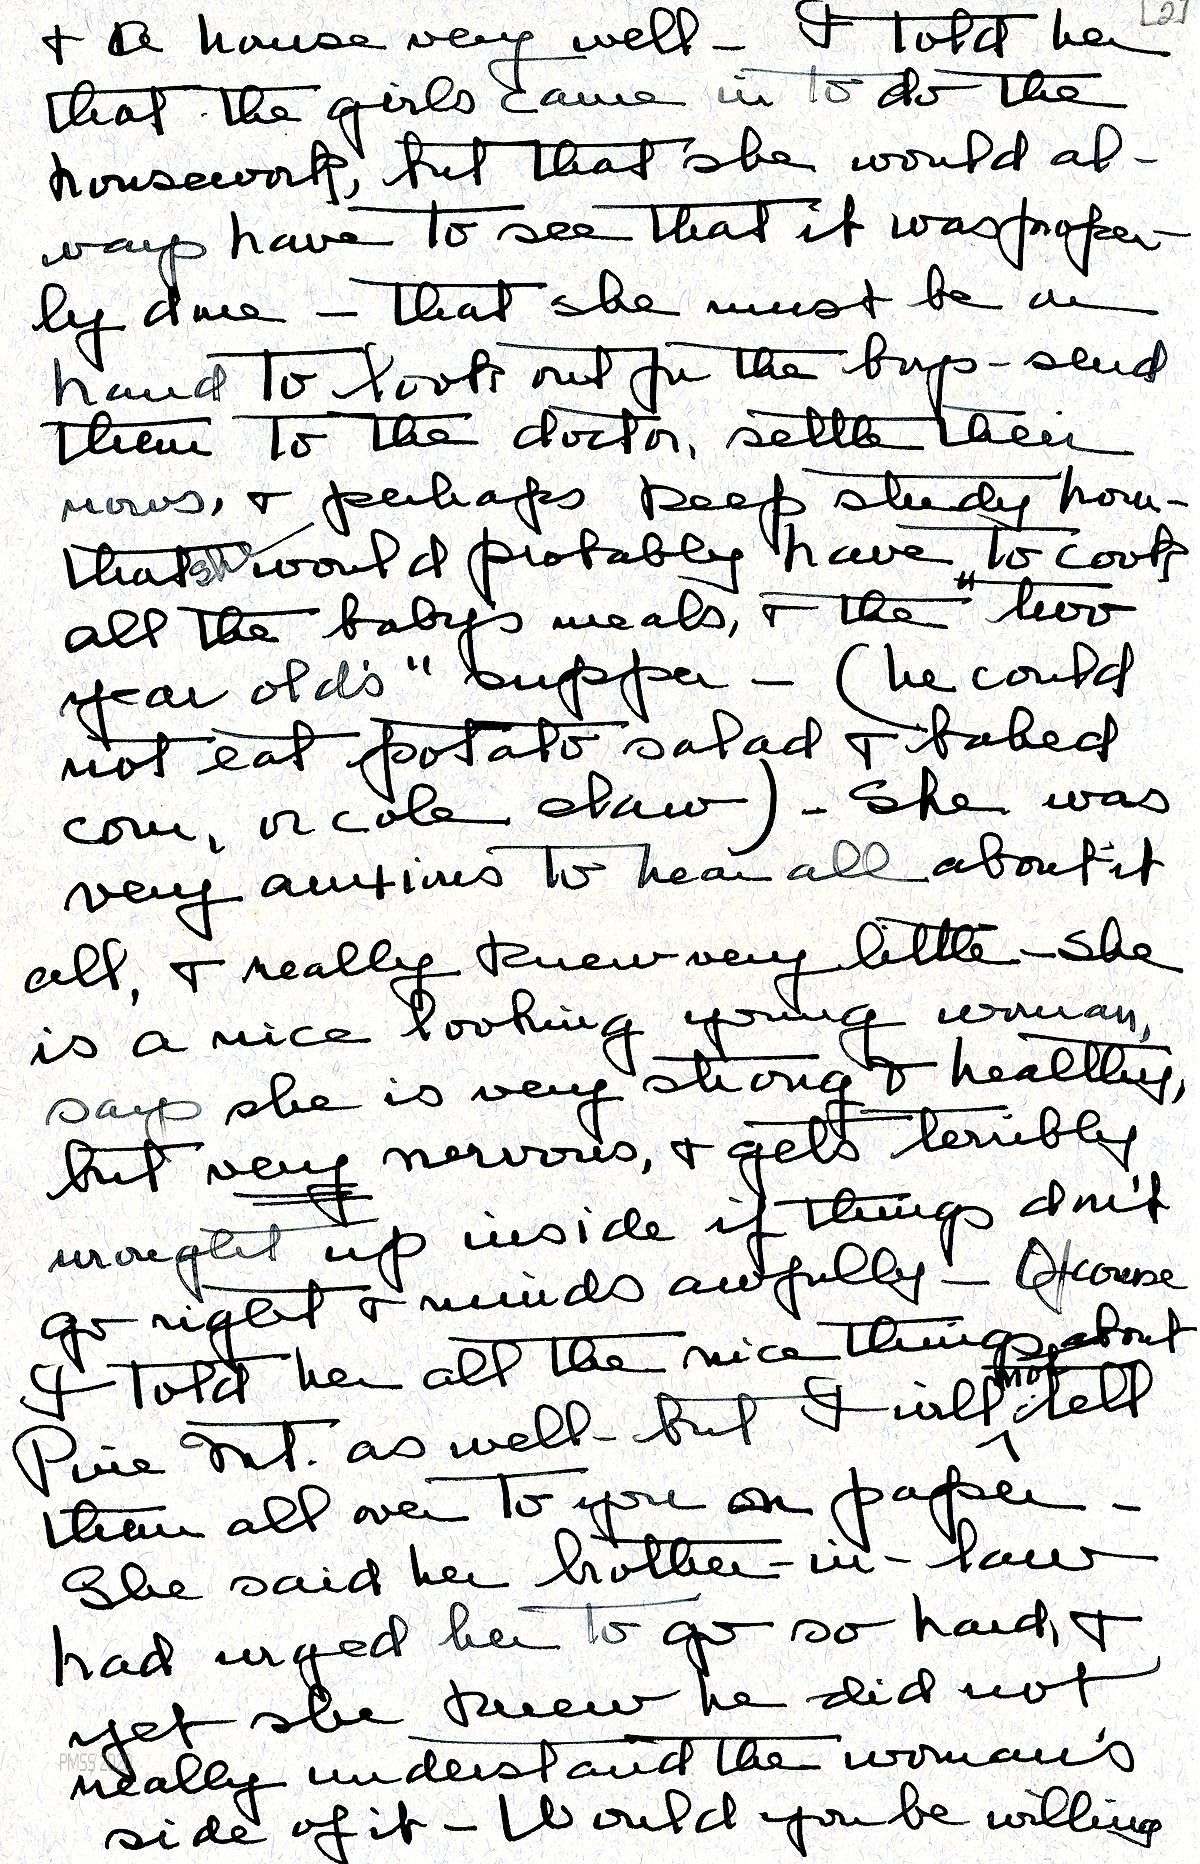 [2]
& a house very well – I told her
that the girls came in to do the
housework, but that she would al-
ways have to see that it was proper-
ly done – that she must be on
hand to look out for the boys – send
them to the doctor, settle their
rows, & perhaps keep study hour –
that she would probably have to cook
all the baby's meals, & the "two
year old's" supper – (he could
not eat potato salad & baked
corn, or cole slaw) – She was
very anxious to hear all about it
all, & really knew very little – She
is a nice looking young woman,
says she is very strong & healthy,
but very nervous, & gets terribly
wrought up inside if things don't
go right & minds awfully – Of course
I told her all the nice things about
Pine Mt. as well – but I will not tell
them all over to you on paper –
She said her brother-in-law
had urged her to go so hard, &
yet she knew he did not
really understand the woman's
side of it – Would you be willing
PMSS